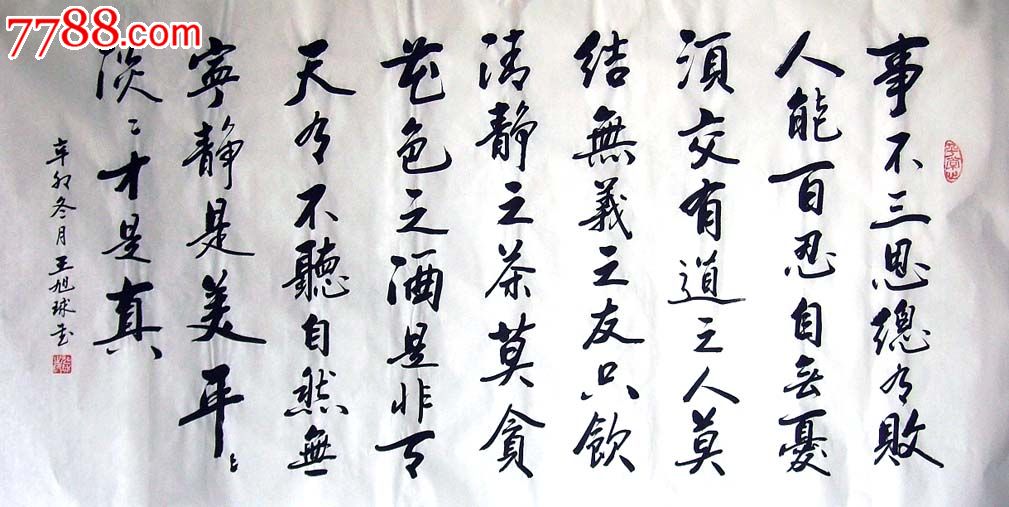 7788.com
事不三思總有敗
人能百忍自无憂
須交有道之人莫
結無義之友只飲
清靜之茶莫貪
花色之酒是非天
天有不聽自然無
寧靜是美平〻
淡〻才是真
辛卯冬月王旭球書